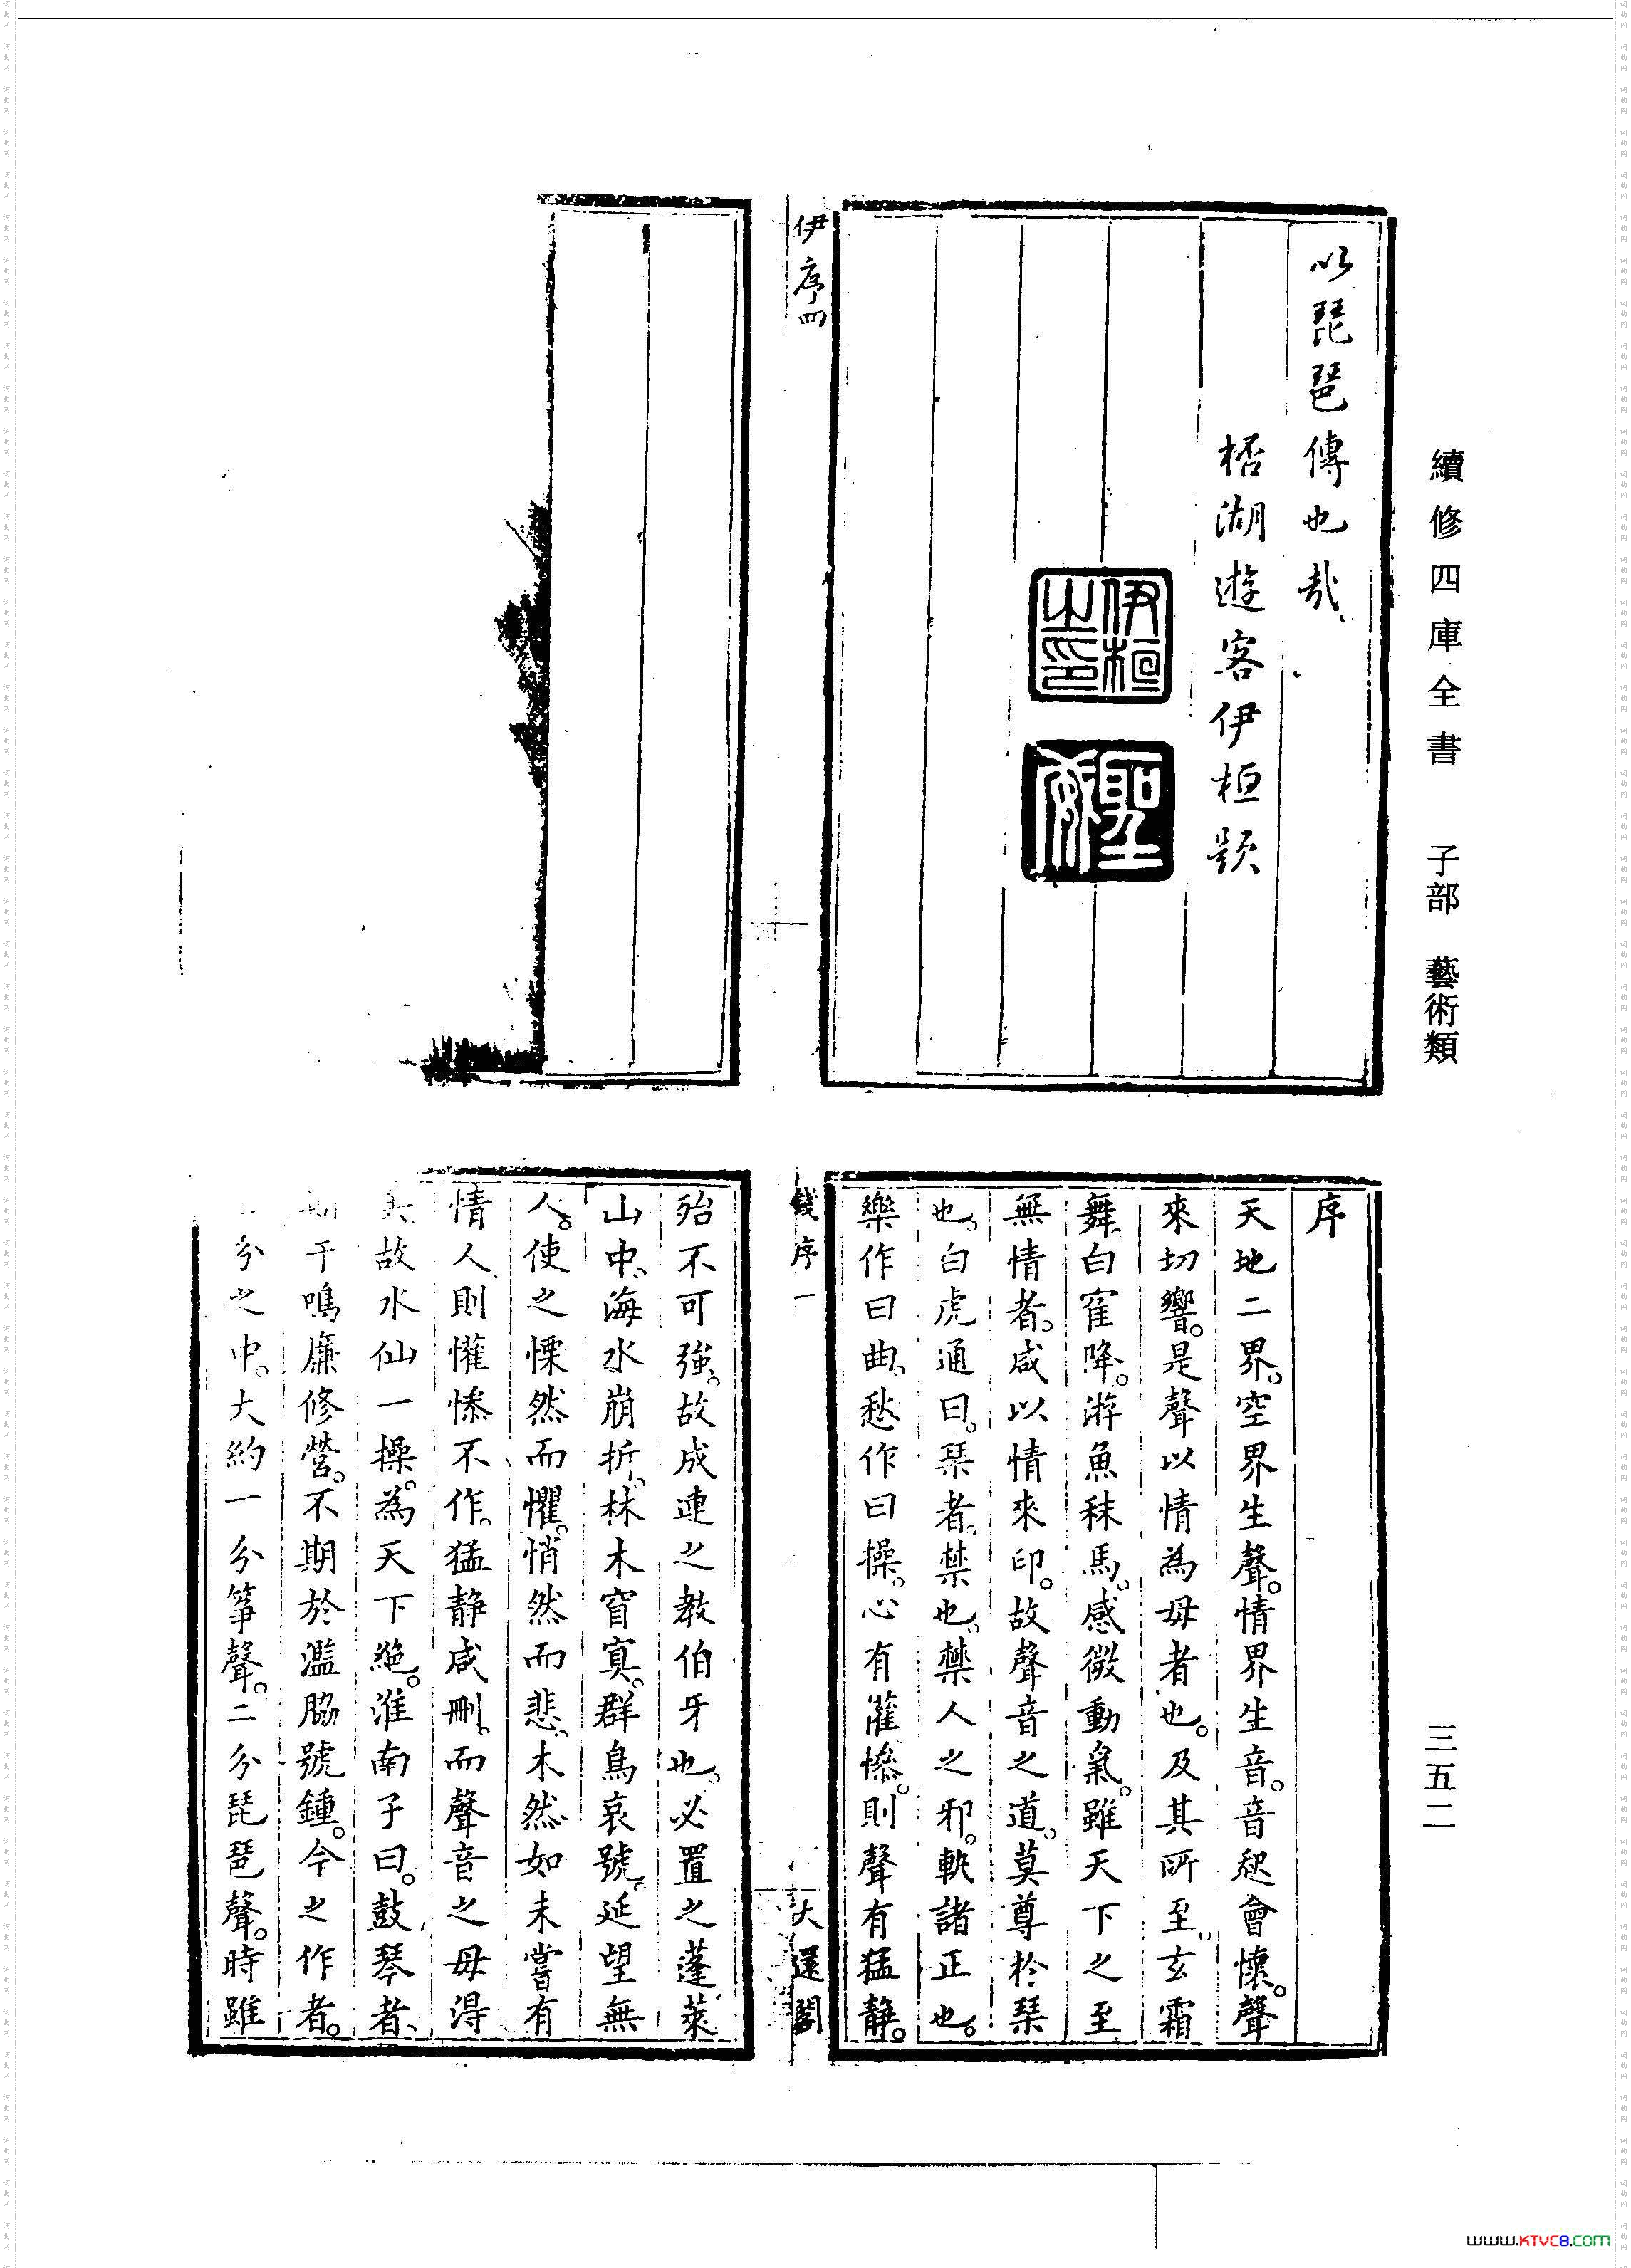 續修四庫全書 子部 藝術類
三五二
以琵琶傳也哉
梧湖遊客伊桓題
伊桓之印
伊序四
序
天地二界。空界生聲。情界生音。音起會懷。聲
來切響。是聲以情為母者也。及其所至、玄霜
舞、白寉降。游魚秣馬。感微動氣。雖天下之至
無情者。咸以情來印。故聲音之道。莫尊於琹
也。白虎通曰。琹者。禁也。禁人之邪。軌諸正也。
樂作曰曲、愁作曰操。心有懽慘。則聲有猛靜。
錢序一
大還閣
殆不可強。故成連之教伯牙也。必置之蓬萊
山中、海水崩折。林木窅寞。群鳥哀號。延望無
人。使之慄然而懼。悄然而悲、木然如未嘗有
情人、則懽慘不作。猛靜咸刪。而聲音之母得
故水仙一操。為天下絕。淮南子曰。鼓琴者、
期于鳴廉修營。不期於濫脇號鍾。今之作者。
分之中。大約一分箏聲。二分琵琶聲。時雖
www.KTVC8.com